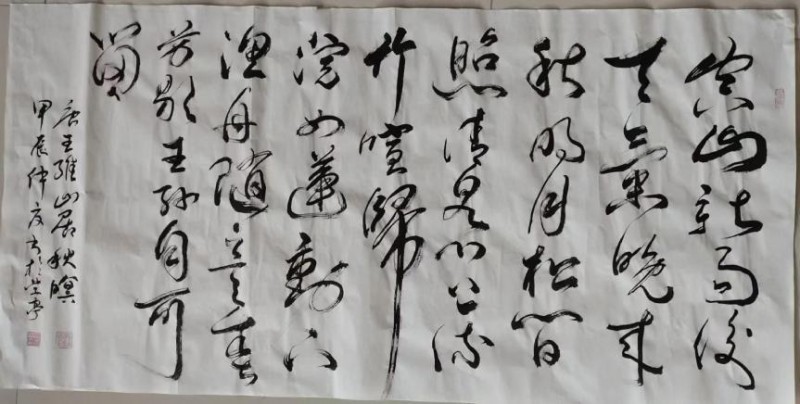 空山新雨後
天氣晚來
秋明月松間
照清泉石上流
竹喧歸
浣女蓮動下
漁舟隨意春
芳歇王孫自可
留
唐王維山居秋暝
甲辰仲夏书於